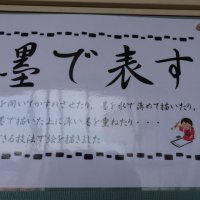 墨で表す
を用いてかすれさせたり、墨を水で薄めて描いたり、
墨で描いた上に濃い墨を重ねたり・・・
できる技法で絵を描きました